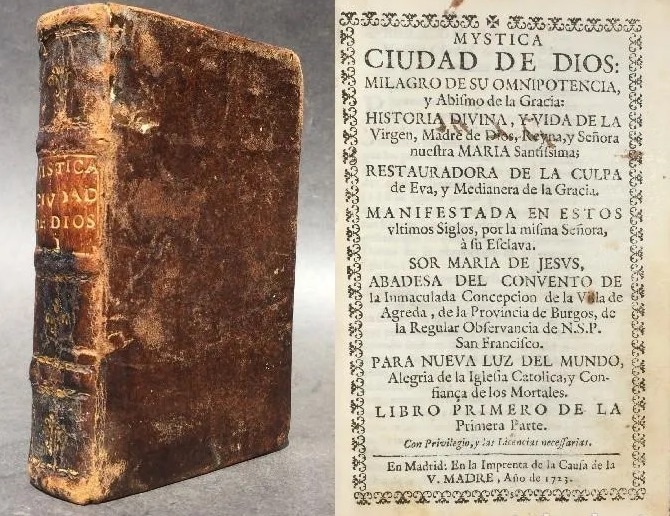 MISTICA
CIVDAD
DE DIOS
1
MYSTICA
CIUDAD DE DIOS:
MILAGRO DE SU OMNIPOTENCIA,
y Abiſmo de la Gracia:
HISTORIA DIVINA, Y VIDA DE LA
Virgen, Madre de Dios, Reyna, y Señora
nueſtra MARIA Santiſsima;
RESTAURADORA DE LA CULPA
de Eva, y Medianera de la Gracia.
MANIFESTADA EN ESTOS
vltimos Siglos, por la miſma Señora,
à ſu Eſclava.
SOR MARIA DE JESVS,
ABADESA DEL CONVENTO DE
la Inmaculada Concepcion de la Villa de
Agreda, de la Provincia de Burgos, de
la Regular Obſervancia de N.S.P.
San Franciſco.
PARA NUEVA LUZ DEL MUNDO,
Alegria de la Igleſia Catolica, y Con-
fiança de los Mortales.
LIBRO PRIMERO DE LA
Primera Parte.
Con Privilegio, y las Licencias neceſſarias.
En Madrid: En la Imprenta de la Cauſa de la
V. MADRE, Año de 1723.